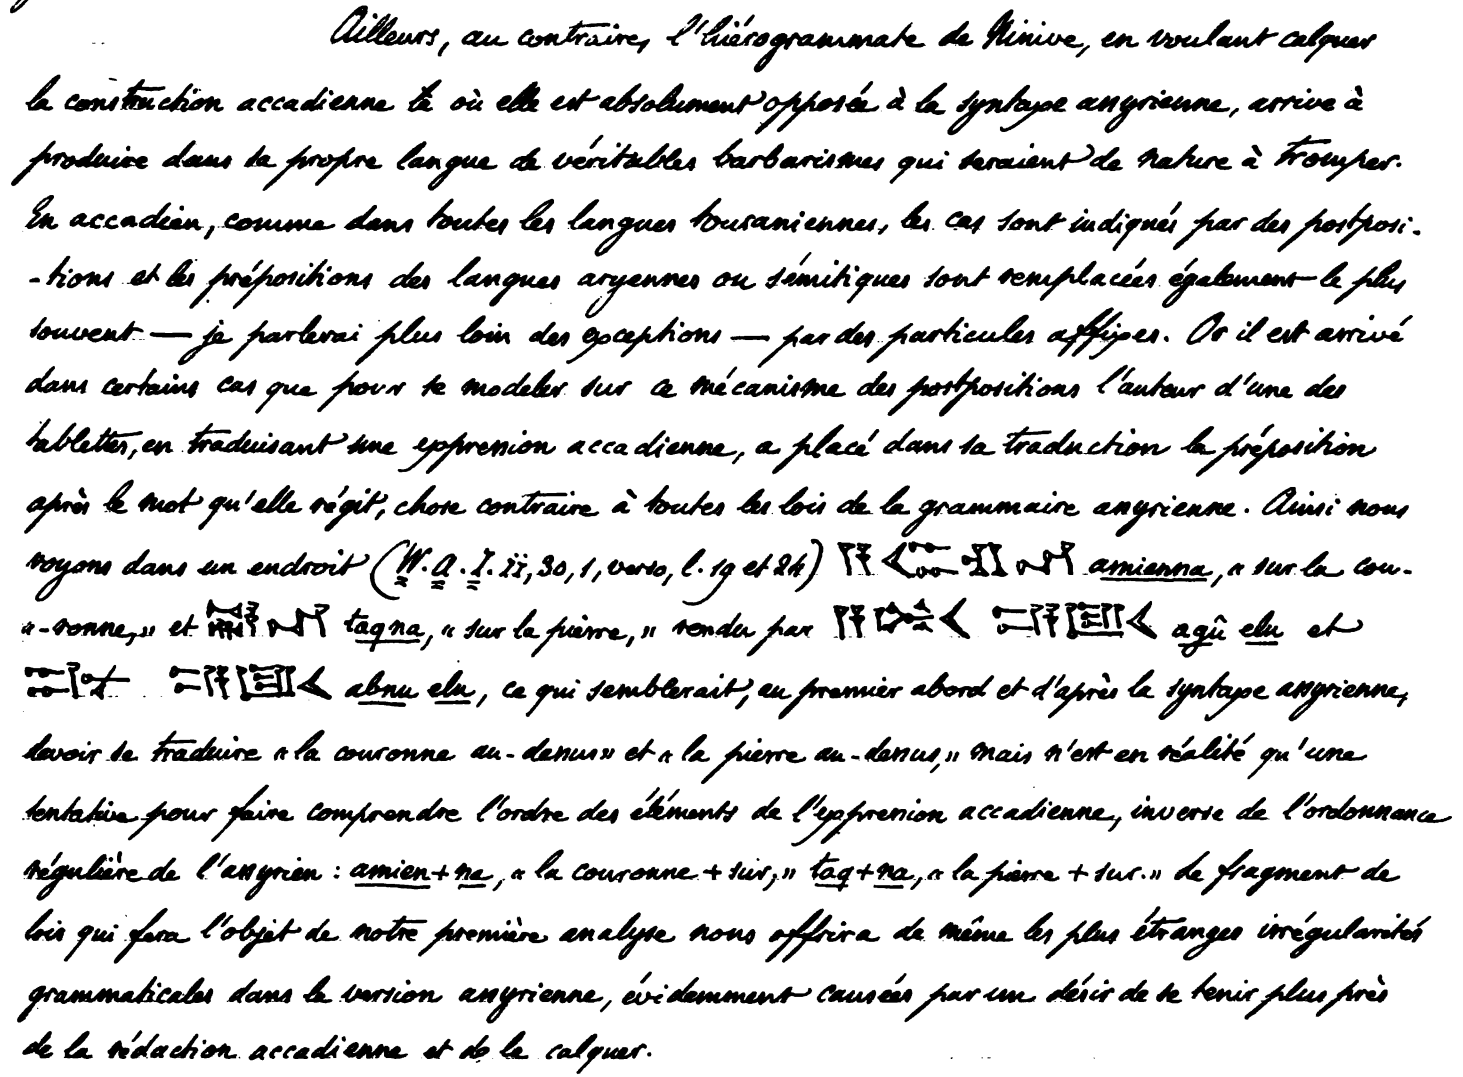 Ailleurs, au contraire, l'hiérogrammate de Ninive, en voulant calquer
la construction accadienne là où elle est absolument opposée à la syntaxe assyrienne, arrive à
produire dans sa propre langue de véritables barbarismes qui seraient de nature à tromper.
En accadien, comme dans toutes les langues touraniennes, les cas sont indiqués par des postposi-
-tions et les prépositions des langues aryennes ou sémitiques sont remplacées également le plus
souvent — je parlerai plus loin des exceptions — par des particules affixes. Or il est arrivé
dans certains cas que pour se modeler sur ce mécanisme des postpositions l'auteur d'une des
tablettes, en traduisant une expression accadienne, a placé dans sa traduction la préposition
après le mot qu'elle régit, chose contraire à toutes les lois de la grammaire assyrienne. Ainsi nous
voyons dans un endroit (W. A. I. ii, 30, 1, verso, l. 19 et 24) amienna, « sur la cou-
« -ronne, » et taqna, « sur la pierre, » rendu par agû elu et
abnu elu, ce qui semblerait, au premier abord et d'après la syntaxe assyrienne,
devoir se traduire « la couronne au-dessus » et « la pierre au-dessus, » mais n'est en réalité qu'une
tentative pour faire comprendre l'ordre des éléments de l'expression accadienne, inverse de l'ordonnance
régulière de l'assyrien : amien + na, « la couronne + sur, » taq + na, « la pierre + sur. » Le fragment de
lois qui fera l'objet de notre première analyse nous offrira de même les plus étranges irrégularités
grammaticales dans la version assyrienne, évidemment causées par un désir de se tenir plus près
de la rédaction accadienne et de la calquer.